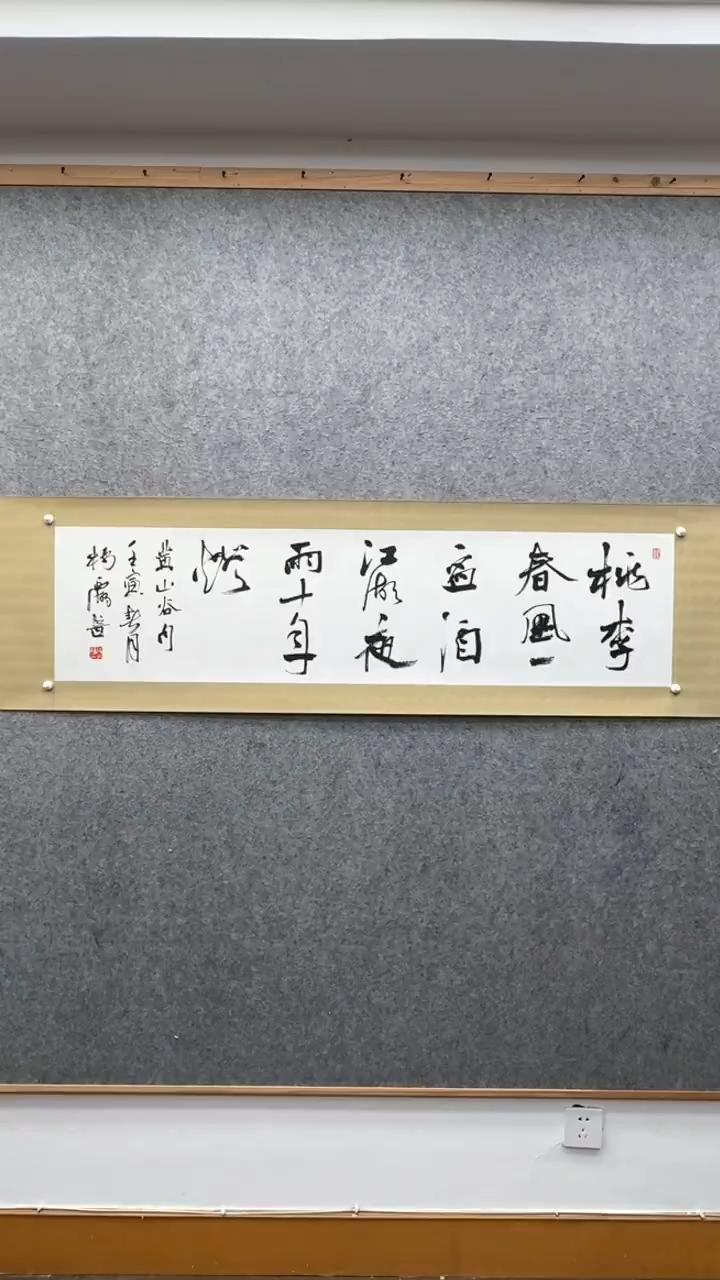 桃李
春風一
盃酒
江湖夜
雨十年
燈
黃山谷句
壬寅月
楊書